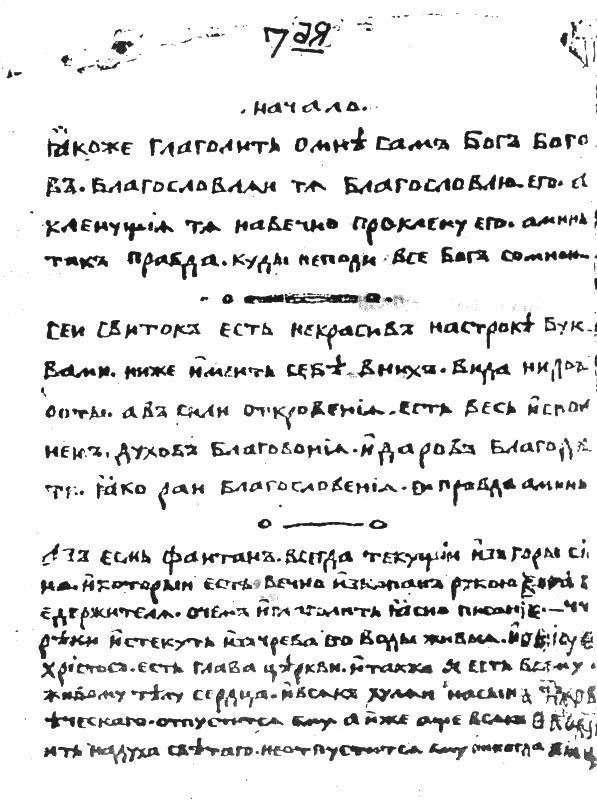 7 ая
. начало.
ꙗкоже глаголить омнѣ самъ богъ бого
въ. благословлаи тя благословлю его.
кленущїя тя навечно проклену его. аминь
такъ правда. куды неподи все богъ сомною.
сеи свитокъ есть некрасивъ настрокѣ бук
вами. ниже имеить себѣ внихъ. вида
аъ сили откровенїя. есть весь испол
ненъ. духовъ благовонїя. и даровъ благода
ти. ꙗко раи благословенїя. правда аминь
азъ есмь фантан. всегда текущїи изъ горы сї
на. и которыи есть вечно изкопанъ рукою
едержителя. очемъ и глаголить ꙗсно писанїе.
рѣки истекуть изъ чрева его воды живыя.
хрїстосъ. есть глава церкви. и также я есть всему.
живому тѣлу сердца. и всякъ хулаи насыи
ѣческаго. отпустится ему а иже аще всяко
ить надуха свѣтаго. не отпустится ему никогда